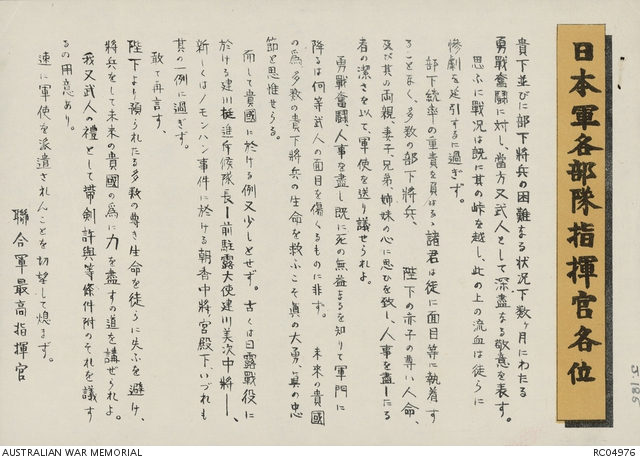 日本軍各部隊指揮官各位
貴下並びに部下將兵の困難なる狀況下數ヶ月にわたる
勇戰奮鬪に対し、當方又武人として深甚なる敬意を表す。
思ふに戰況は既に其の峠を越し、此の上の流血は徒らに
慘劇を延引するに過ぎず。
部下統率の重責を負はるゝ諸君は徒に面目等に執着す
ることなく、多数の部下將兵、 陛下の赤子の尊い人命、
及び其の両親、妻子兄弟、姉妹の心に思ひを致し、人事を盡した
者の潔さを以て、軍使を送り議せられよ。
勇戰奮鬪、人事を盡し既に死の無益なるを知りて軍門に
降るは何等武人の面目を傷くるものに非ず。 未來の貴國
の爲、多数の貴下將兵の生命を救ふこそ眞の大勇、眞の忠
節と思惟せらる。
而して貴國に於ける例又少しとせず。古くは日露戰役に
於ける建川挺進斥候隊長ー前駐露大使建川美次中將ー、
新しくはノモンハン事件に於ける朝香中將宮殿下、いづれも
其の一例に過ぎず。
敢て再言す、
陛下より預られたる多数の尊き生命を徒らに失ふを避け、
將兵をして未來の貴國の爲に力を盡すの道を講ぜられよ。
我又武人の禮として帶劍許與等條件附のそれを議す
るの用意あり。
速に軍使を派遣されんことを切望して熄まず。
聯合軍最高指揮官
AUSTRALIAN WAR MEMORIAL
RC04976